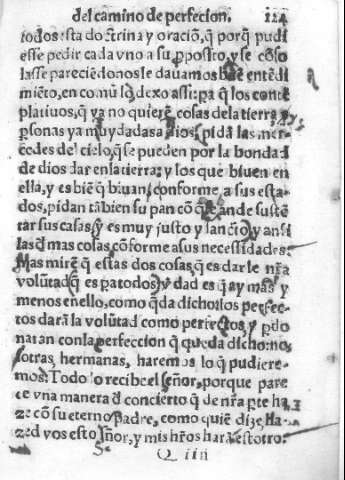 del camino de perfecion. 124
todos: sta doctrina y oraciõ, q̃ porq̃ pudi
esse pedir cada vno a su p̱posito, y se cõso
lasse pareciẽdonos le dauamos buẽ entẽdi
miẽto, en comũ lo dexo assi: pa q̃ los contẽ
platiuos, q̃ ya no quierẽ cosas de la tierra y
p̱sonas ya muy dadas a dios, pidã las mer
cedes del cielo, q̃ se pueden por la bondad
de dios dar en la tierra: y los que biuen en
ella, y es biẽ q̃ biuan conforme a sus esta-
dos, pidan tãbien su pan cõ q̃ se ande sustẽ
tar sus casas, y es muy justo y sancto, y ansi
las q̃ mas cosas, cõforme a sus necessidades.
Mas mirẽ q̃ estas dos cosas, q̃ es darle nr̃a
volũtad, q̃ es pa todos, y dad es q̃ ay mas y
menos en ello, como q̃da dicho: los perfec-
tos darã la volũtad como perfectos, y p̱do
naran con la perfeccion q̃ queda dicho: nos
otras, hermanas, haremos lo q̃ pudiere-
mos: Todo lo recibe el señor, porque pare
ce vna manera d̃ concierto q̃ de nr̃a p̱te ha
ze cõ su eterno padre, como quiẽ dize, Ha
zed vos esto señor, y mis hr̃nos harã estotro.
Q iiii